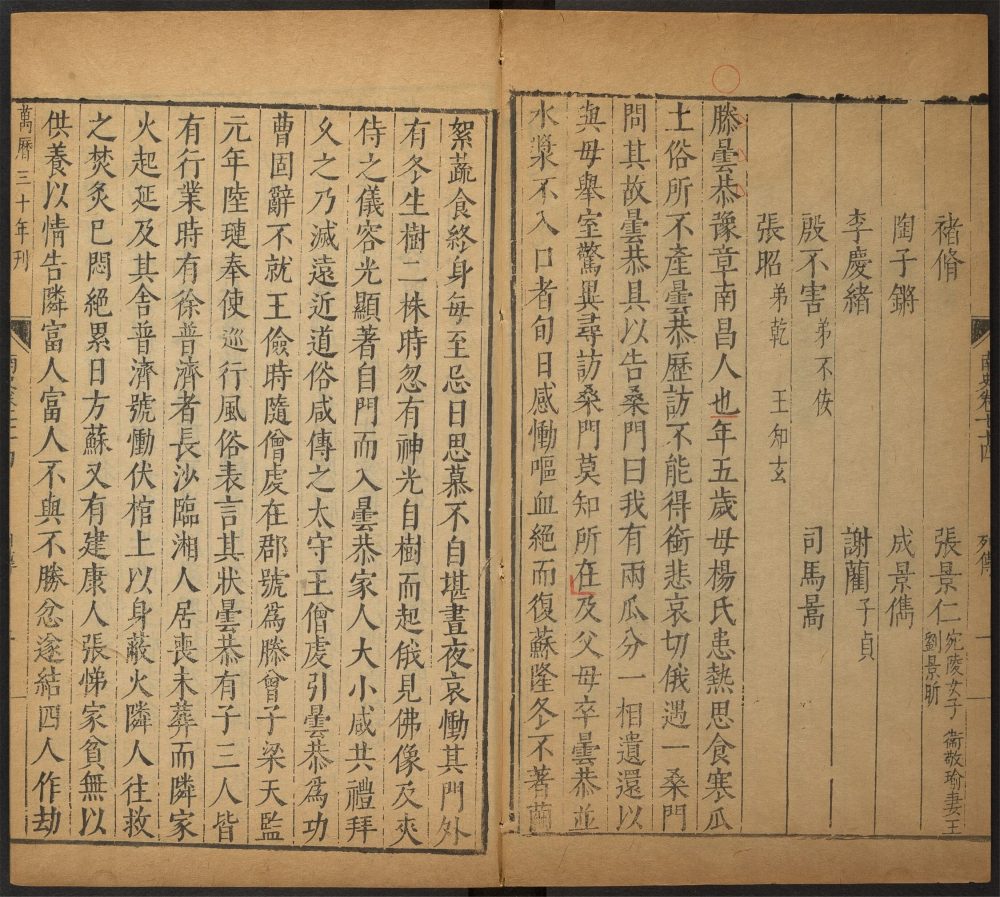 褚脩 張景仁 宛陵女子 衞敬瑜妻王 劉景昕
陶子鏘 成景儁
李慶緒 謝藺 子貞
殷不害 弟不佞 司馬暠
張昭 弟乾 王知玄
滕曇恭豫章南昌人也年五歲母楊氏患熱思食寒瓜
土俗所不產曇恭歷訪不能得銜悲哀切俄遇一桑門
問其故曇恭具以告桑門曰我有兩瓜分一相遺還以
與母舉室驚異尋訪桑門莫知所在及父母卒曇恭並
水漿不入口者旬日感慟嘔血絕而復蘇隆冬不著繭
南史卷七十四 列傳 一
絮蔬食終身每至忌日思慕不自堪晝夜哀慟其門外
有冬生樹二株時忽有神光自樹而起俄見佛像及夾
侍之儀容光顯著自門而入曇恭家人大小咸共禮拜
久之乃滅遠近道俗咸傳之太守王僧虔引曇恭爲功
曹固辭不就王儉時隨僧虔在郡號爲滕曾子梁天監
元年陸璉奉使巡行風俗表言其狀曇恭有子三人皆
有行業時有徐普濟者長沙臨湘人居喪未葬而隣家
火起延及其舍普濟號慟伏棺上以身蔽火隣人往救
之焚炙已悶絕累日方蘇又有建康人張悌家貧無以
供養以情告隣富人富人不與不勝忿遂結四人作劫
萬曆三十年刊